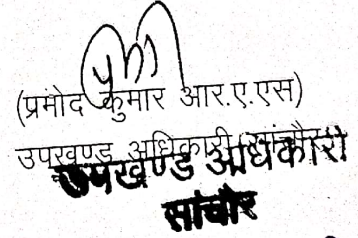 (प्रमोद कुमार आर.ए.एस)
उपखण्ड अधिकारी, सांचौर
उपखण्ड अधिकारी
सांचौर